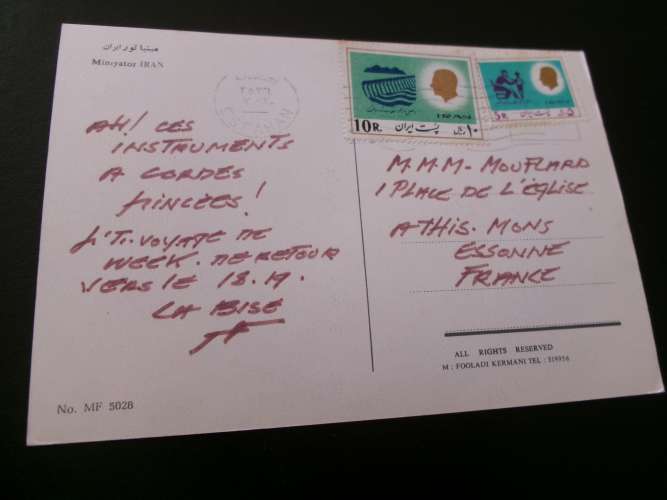 مینیاتور ایران
Miniyator IRAN
AH! CES
INSTRUMENTS
A CORDES
PINCÉES!
P'TI. VOYAGE DE
WEEK. DE RETOUR
VERS LE 18.19.
LA BISE
JF
10R.
پست ایران
۱۰ ریال
5R
M.M.M- MOUFLARD
1 PLACE DE L'ÉGLISE
ATHIS. MONS
ESSONNE
FRANCE
ALL RIGHTS RESERVED
M : FOOLADI KERMANI TEL : 319954
No. MF 5028